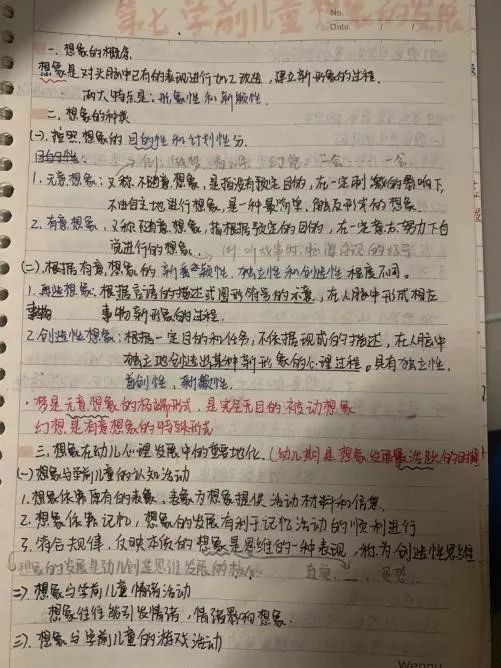 第七 学前儿童想象的发展
No.
Date.
一、想象的概念.
想象是对头脑中已有的表现进行加工改造，建立新形象的过程.
两大特点是：形象性和新颖性.
二、想象的种类
(一)、按照想象的目的性和计划性分.
目的性：
1、无意想象：又称不随意想象，是指没有预定目的，在一定刺激的影响下，
不由自主地进行想象，是一种最简单，初级形式的想象.
2、有意想象：又称随意想象，指根据预定的目的，在一定意志努力下自
觉进行的想象.
(二)、根据有意想象的新颖性、独立性和创造性程度不同。
1、再造想象：根据言语的描述或图形符号的示意，在人脑中形成相应
事物 事物新形象的过程.
2.创造性想象：根据一定目的和任务，不依据现成的描述，在人脑中
独立地创造出某种新形象的心理过程。具有独立性、
首创性、新颖性.
·梦是无意想象的极端形式，是完全无目的被动想象
幻想是有意想象的特殊形式
三、想象在幼儿心理发展中的重要地位.（幼儿期是想象发展最活跃的时期）
(一)想象与学前儿童的认知活动
1、想象依靠原有的表象，表象为想象提供活动材料和信息.
2、想象依靠记忆，想象的发展有利于记忆活动的顺利进行
3、符合规律，反映本质的想象是思维的一种表现，称为创造性思维
想象的发展是幼儿创造思维发展的核心
二) 想象与学前儿童情绪活动
想象往往能引发情绪，情绪影响想象.
三)、想象与学前儿童的游戏活动